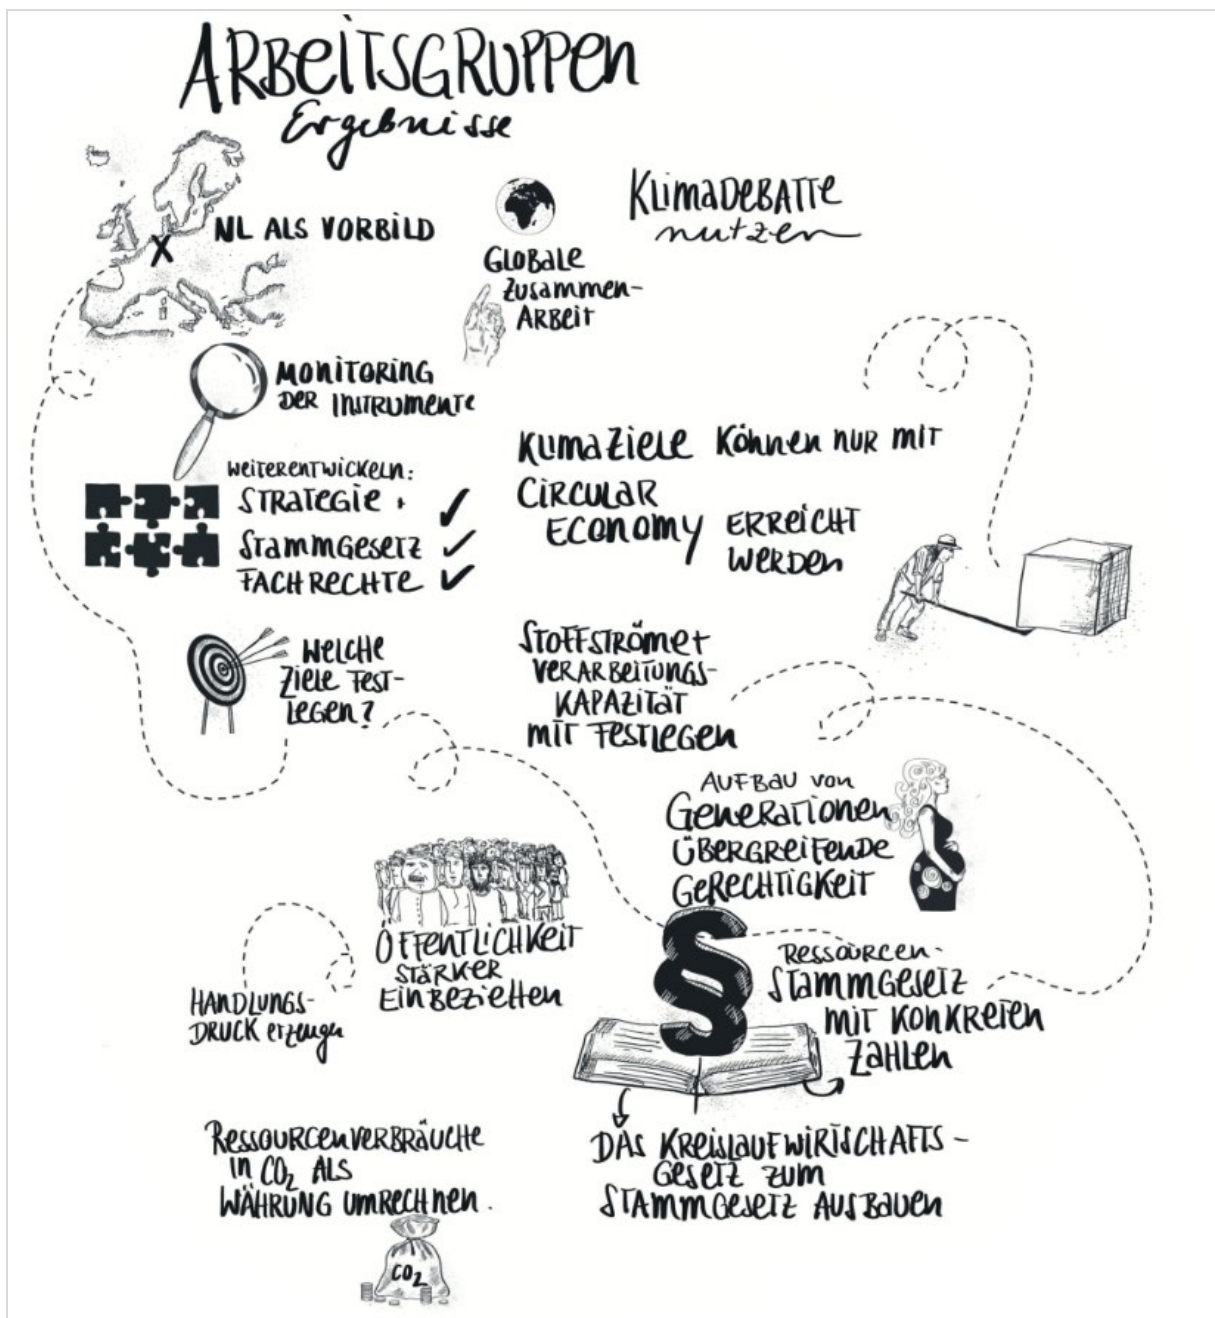 ARBEITSGRUPPEN
Ergebnisse
NL ALS VORBILD
GLOBALE
ZUSAMMEN-
ARBEIT
KLIMADEBATTE
nutzen
MONITORING
DER INSTRUMENTE
WEITERENTWICKELN:
STRATEGIE +
STAMMGESETZ
FACHRECHTE
KLIMAZIELE KÖNNEN NUR MIT
CIRCULAR
ECONOMY ERREICHT
WERDEN
WELCHE
ZIELE FEST-
LEGEN?
STOFFSTRÖME+
VERARBEITUNGS-
KAPAZITÄT
MIT FESTLEGEN
AUFBAU VON
GENERATIONEN
ÜBERGREIFENDE
GERECHTIGKEIT
ÖFFENTLICHKEIT
STÄRKER
EINBEZIEHEN
HANDLUNGS-
DRUCK erzeugen
§
RESSOURCEN-
STAMMGESETZ
MIT KONKRETEN
ZAHLEN
RESSOURCENVERBRÄUCHE
IN CO₂ ALS
WÄHRUNG UMRECHNEN.
CO₂
DAS KREISLAUFWIRTSCHAFTS-
GESETZ ZUM
STAMMGESETZ AUSBAUEN